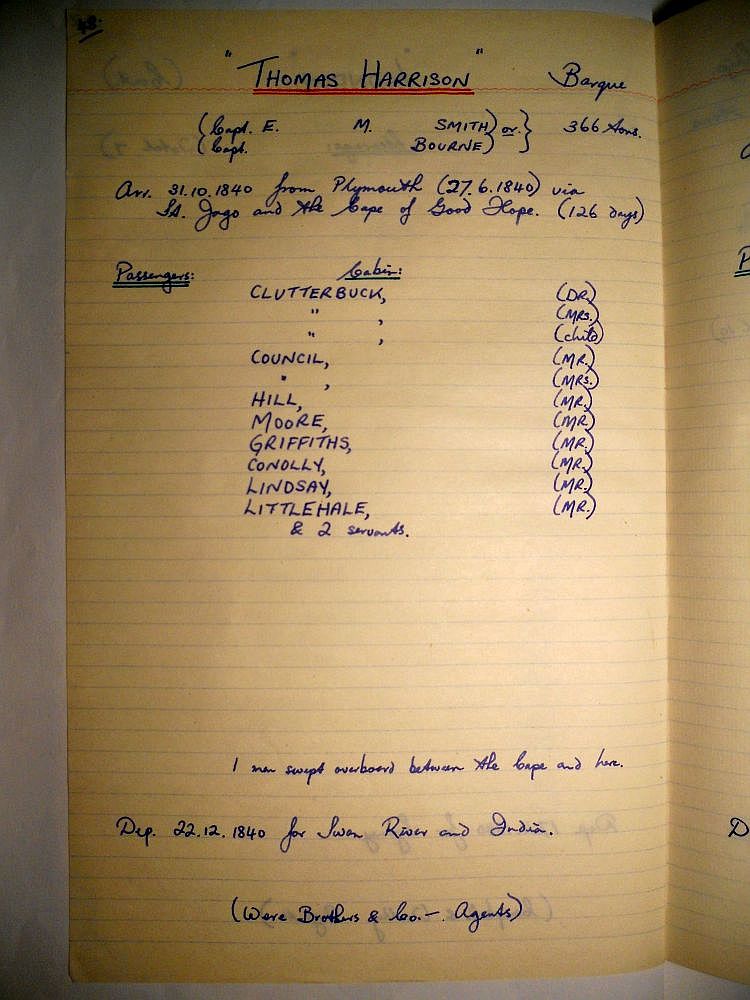 48.
"THOMAS HARRISON" Barque
(Capt. E. M. SMITH) or } 366 tons.
(Capt. BOURNE)
Arr. 31.10.1840 from Plymouth (27.6.1840) via
St. Jago and the Cape of Good Hope. (126 days)
Passengers: Cabin:
CLUTTERBUCK, (DR.)
" , (MRS.)
" , (child)
COUNCIL, (MR.)
" , (MRS.)
HILL, (MR.)
MOORE, (MR.)
GRIFFITHS, (MR.)
CONOLLY, (MR.)
LINDSAY, (MR.)
LITTLEHALE, (MR.)
& 2 servants.
1 man swept overboard between the Cape and here.
Dep. 22.12.1840 for Swan River and India.
(Were Brothers & Co. – Agents)
P
D